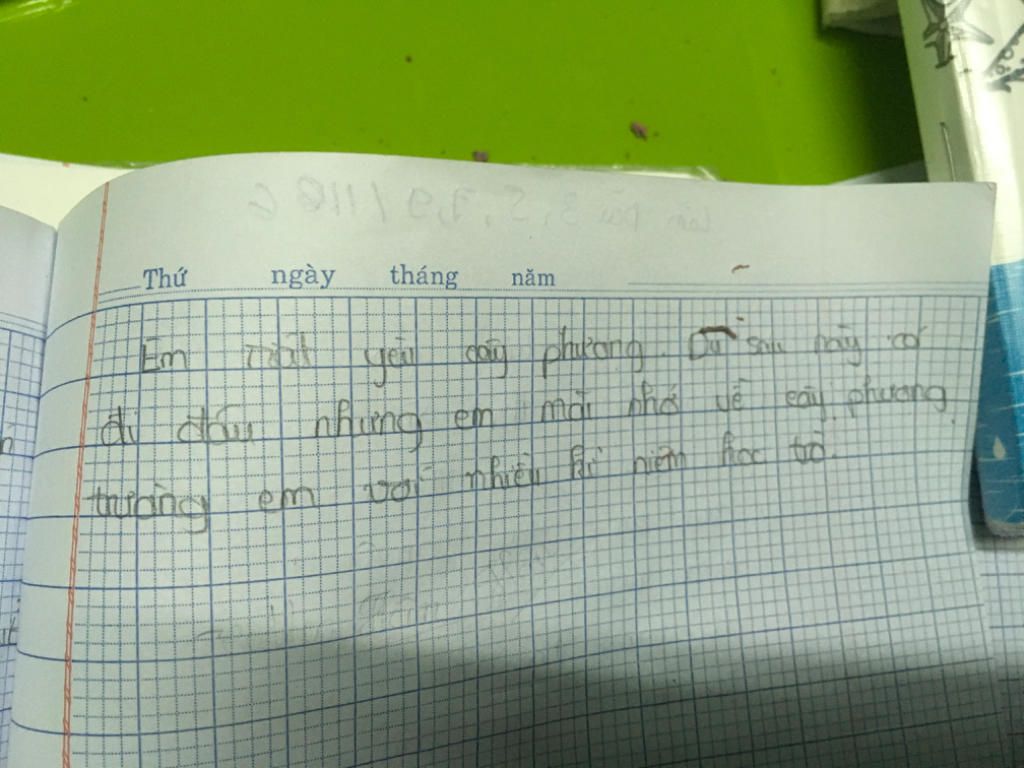 Thứ ngày tháng năm
Em rất yêu cây phượng. Dù sau này có
đi đâu nhưng em mãi nhớ về cây phượng
trường em với nhiều kỉ niệm học trò.